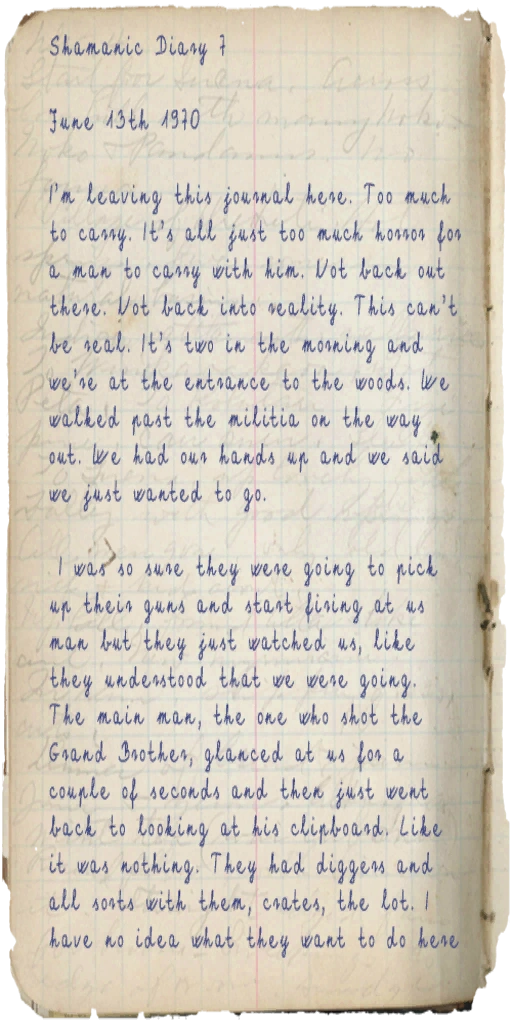 Shamanic Diary 7
June 13th 1970
I'm leaving this journal here. Too much
to carry. It's all just too much horror for
a man to carry with him. Not back out
there. Not back into reality. This can't
be real. It's two in the morning and
we're at the entrance to the woods. We
walked past the militia on the way
out. We had our hands up and we said
we just wanted to go.
I was so sure they were going to pick
up their guns and start firing at us
man but they just watched us, like
they understood that we were going.
The main man, the one who shot the
Grand Brother, glanced at us for a
couple of seconds and then just went
back to looking at his clipboard. Like
it was nothing. They had diggers and
all sorts with them, crates, the lot. I
have no idea what they want to do here